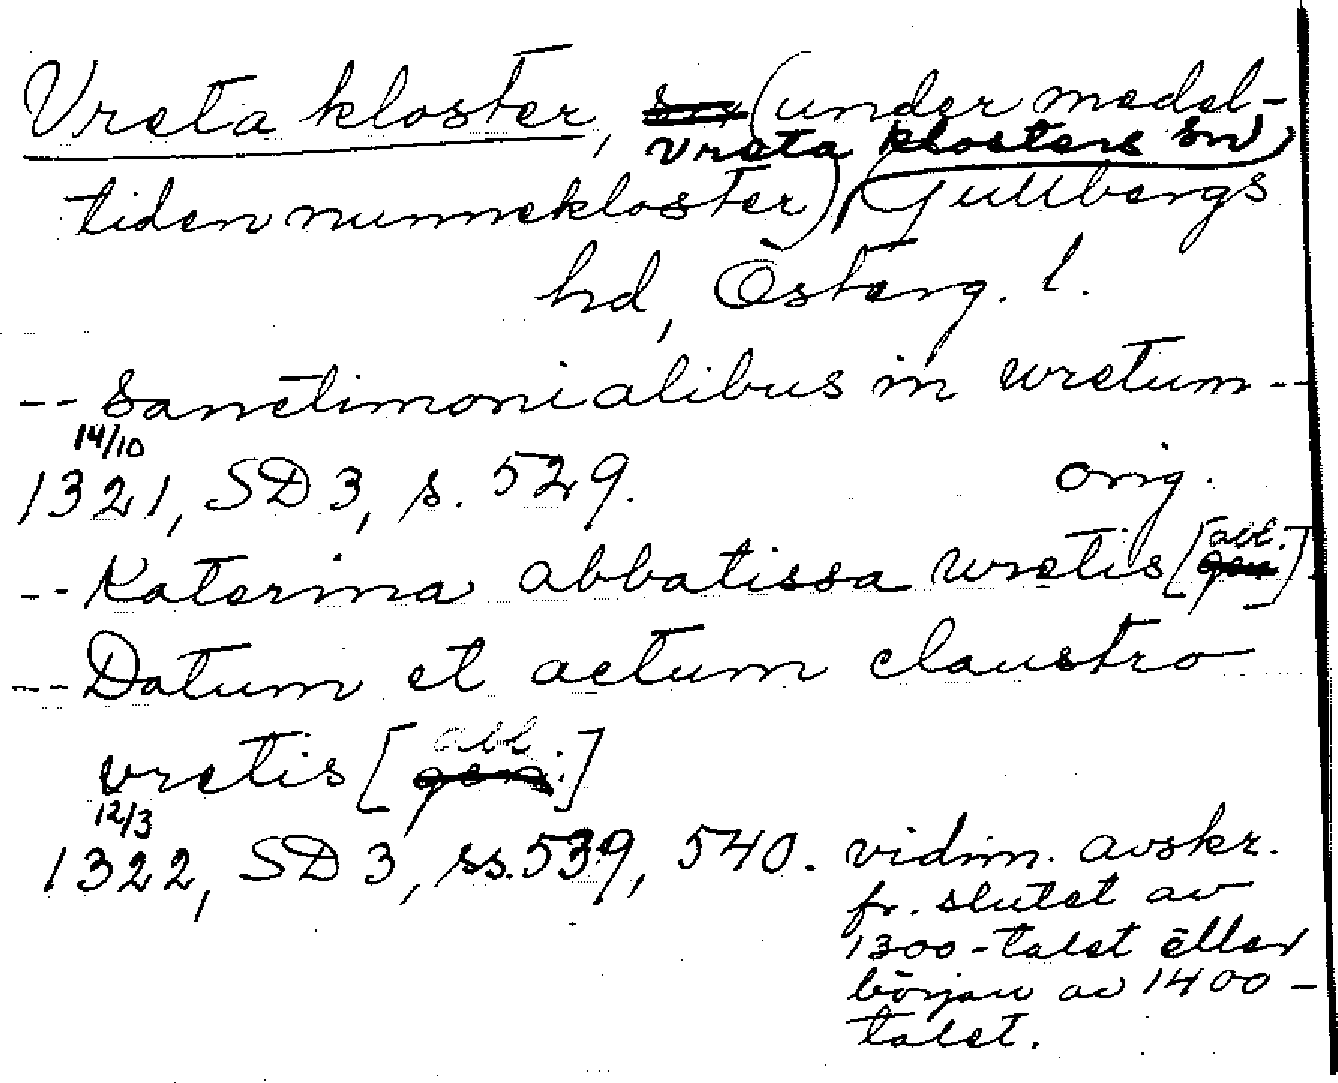 Vreta kloster, sn, (under medel-
Vreta klosters sn,
tiden nunnekloster) Gullbergs
hd, Österg. l.
-- Sanctimonialibus in wretum --
14/10
1321, SD 3, s. 529. orig.
abl.
-- Katerina abbatissa wretis [gen.]
-- Datum et actum claustro
abl.
vretis [gen.]
12/3
1322, SD 3, ss. 539, 540. vidim. avskr.
fr. slutet av
1300-talet eller
början av 1400-
talet.